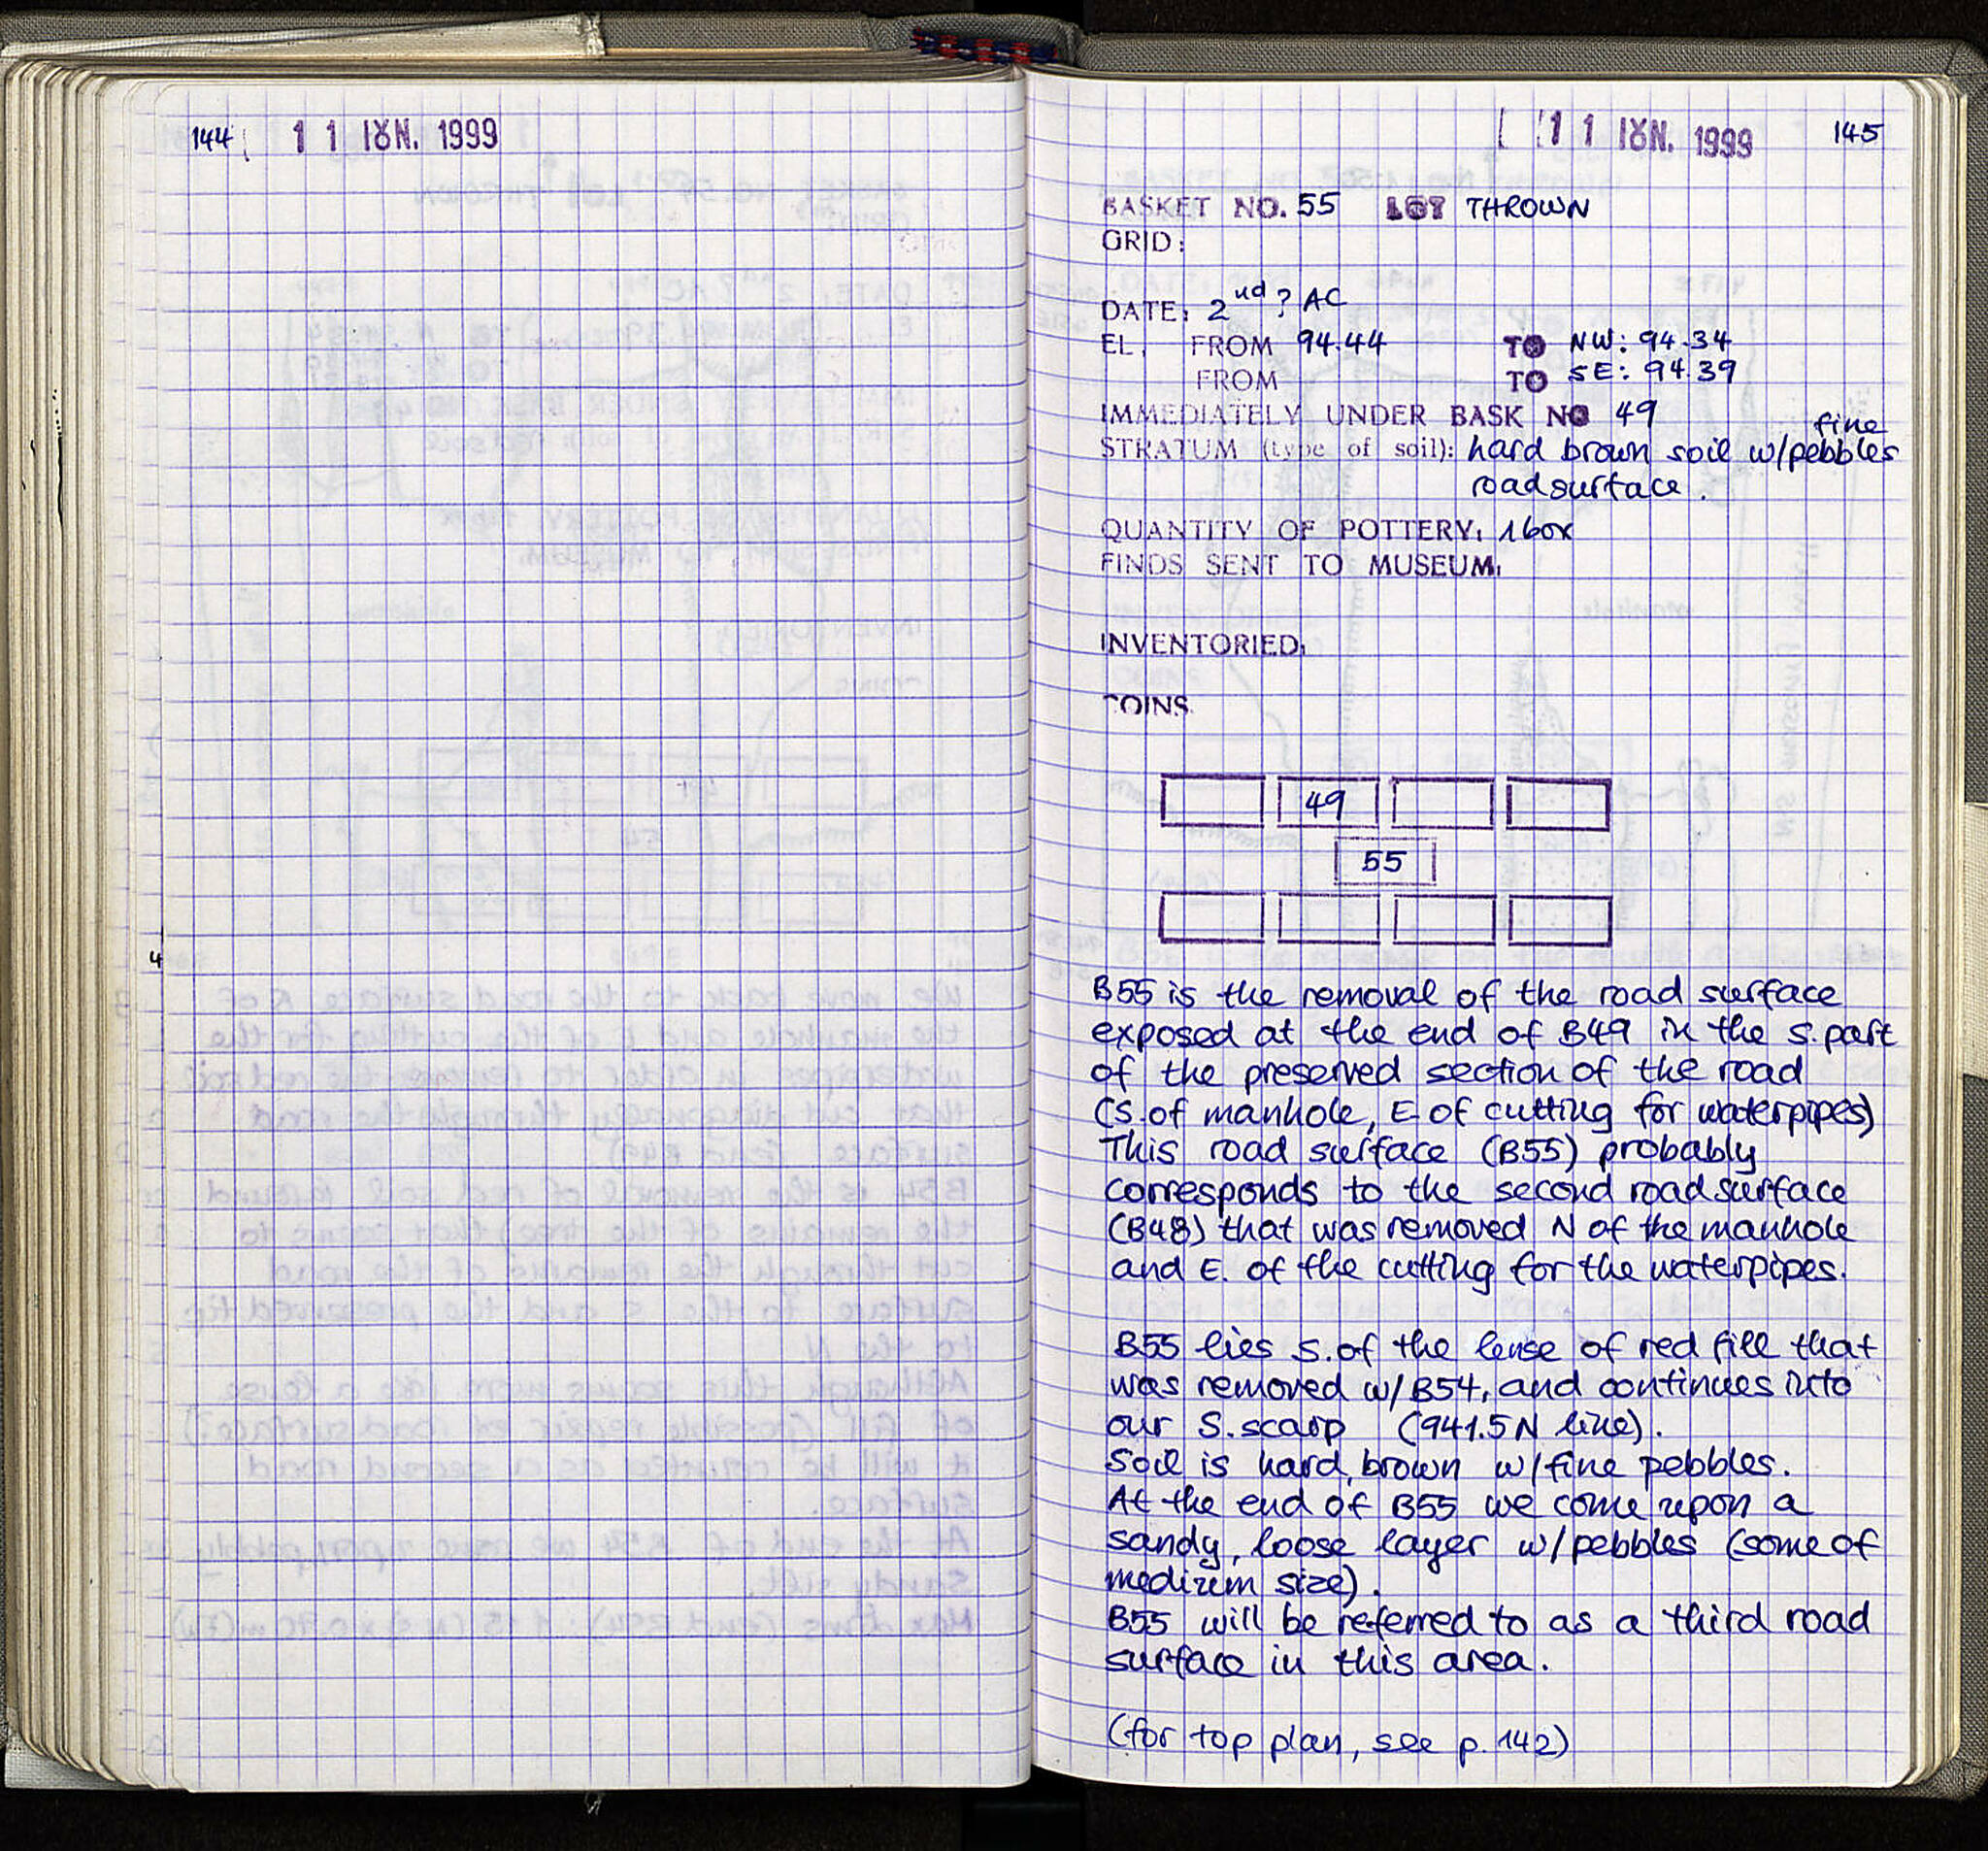 144 1 1 ΙȣΝ. 1999
1 1 ΙȣΝ. 1999 145
BASKET NO. 55 LOT THROWN
GRID:
DATE: 2nd ? AC
EL. FROM 94.44 TO NW: 94.34
FROM TO SE: 94.39
IMMEDIATELY UNDER BASK NO 49
fine
STRATUM (type of soil): hard brown soil w/pebbles
road surface.
QUANTITY OF POTTERY: 1 box
FINDS SENT TO MUSEUM:
INVENTORIED:
COINS
49
55
B55 is the removal of the road surface
exposed at the end of B49 in the S. part
of the preserved section of the road
(S. of manhole, E. of cutting for waterpipes)
This road surface (B55) probably
corresponds to the second road surface
(B48) that was removed N of the manhole
and E. of the cutting for the waterpipes.
B55 lies S. of the lense of red fill that
was removed w/B54, and continues into
our S. scarp (941.5 N line).
Soil is hard, brown w/fine pebbles.
At the end of B55 we come upon a
sandy, loose layer w/pebbles (some of
medium size).
B55 will be referred to as a third road
surface in this area.
(for top plan, see p. 142)